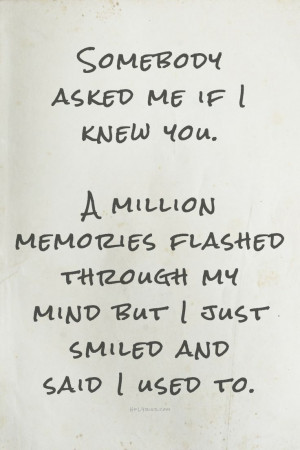 Somebody
asked me if I
knew you.
A million
memories flashed
through my
mind but I just
smiled and
said I used to.